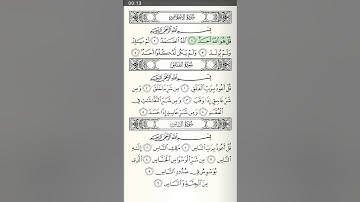 00:13
سُورَةُ الإِخْلَاصِ
بِسْمِ اللَّهِ الرَّحْمَٰنِ الرَّحِيمِ
قُلْ هُوَ اللَّهُ أَحَدٌ ١ اللَّهُ الصَّمَدُ ٢ لَمْ يَلِدْ
وَلَمْ يُولَدْ ٣ وَلَمْ يَكُن لَّهُ كُفُوًا أَحَدٌ ٤
سُورَةُ الْفَلَقِ
بِسْمِ اللَّهِ الرَّحْمَٰنِ الرَّحِيمِ
قُلْ أَعُوذُ بِرَبِّ الْفَلَقِ ١ مِن شَرِّ مَا خَلَقَ ٢ وَمِن
شَرِّ غَاسِقٍ إِذَا وَقَبَ ٣ وَمِن شَرِّ النَّفَّاثَاتِ فِي
الْعُقَدِ ٤ وَمِن شَرِّ حَاسِدٍ إِذَا حَسَدَ ٥
سُورَةُ النَّاسِ
بِسْمِ اللَّهِ الرَّحْمَٰنِ الرَّحِيمِ
قُلْ أَعُوذُ بِرَبِّ النَّاسِ ١ مَلِكِ النَّاسِ ٢ إِلَٰهِ
النَّاسِ ٣ مِن شَرِّ الْوَسْوَاسِ الْخَنَّاسِ ٤ الَّذِي
يُوَسْوِسُ فِي صُدُورِ النَّاسِ ٥
مِنَ الْجِنَّةِ وَالنَّاسِ ٦